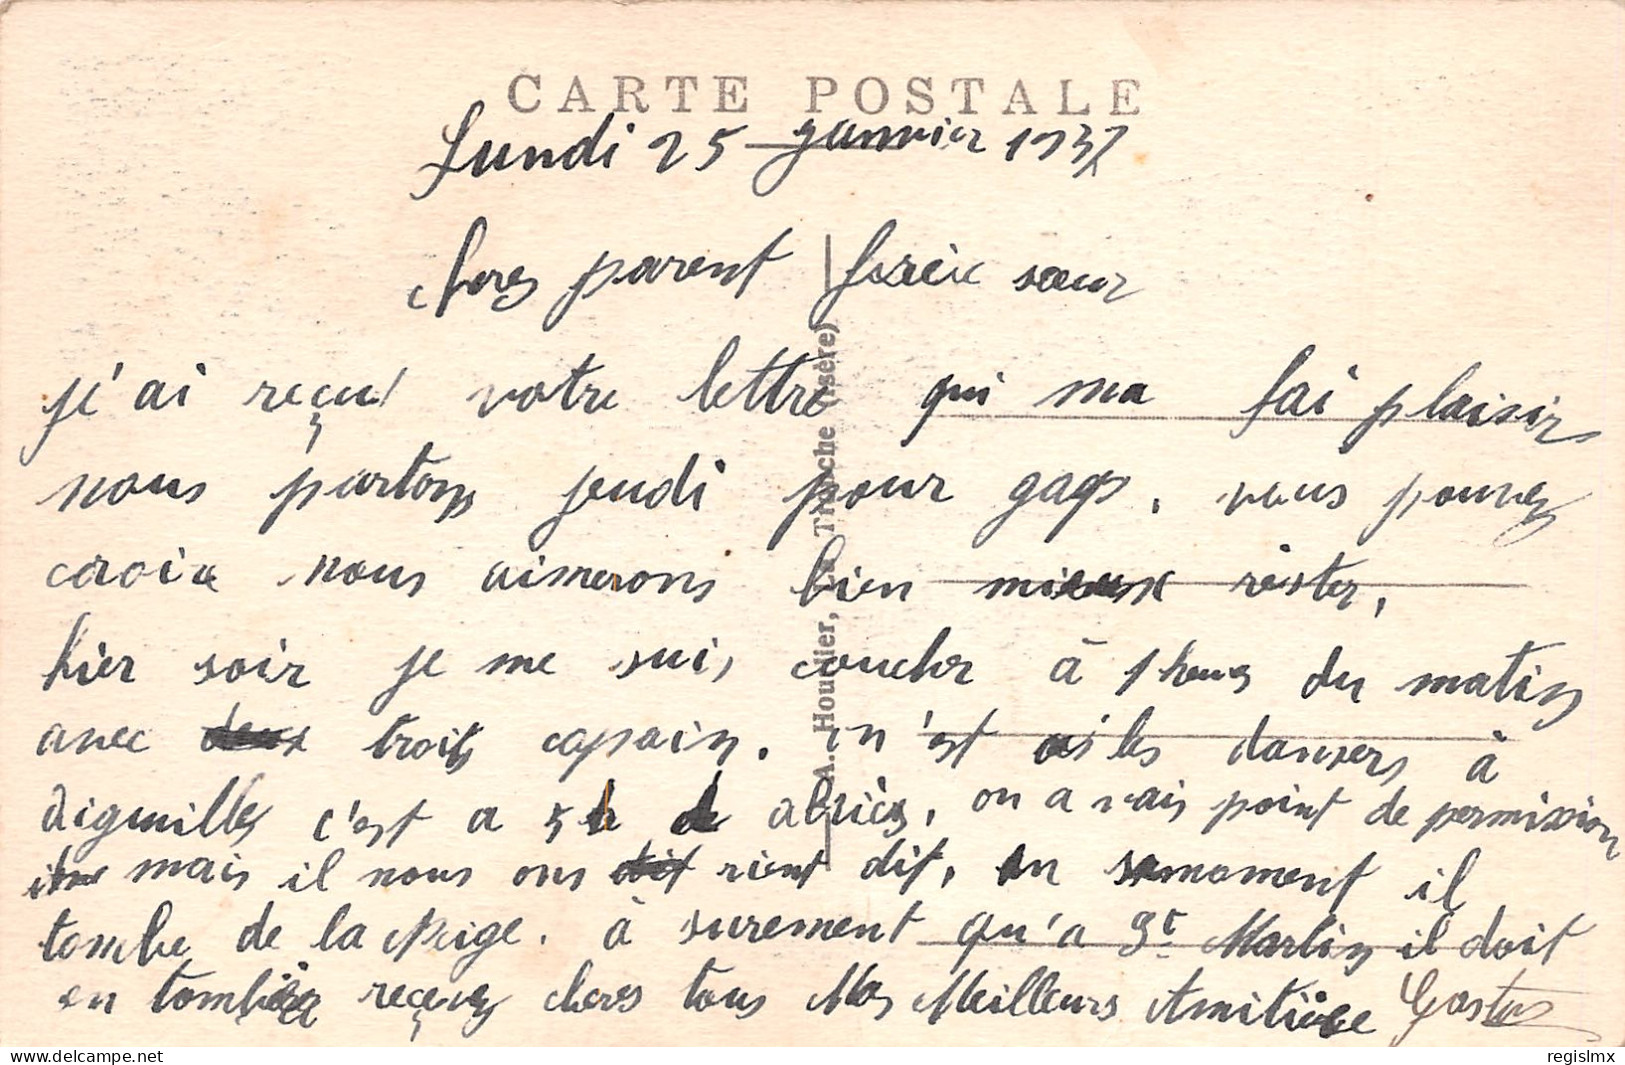 CARTE POSTALE
Lundi 25 janvier 1937
chers parent frère sœur
j'ai reçu votre lettre qui ma fai plaisir
nous partons jeudi pour gap, vous pouvez
croire nous aimerons bien mieux rester,
hier soir je me suis coucher à 1 heures du matin
avec deux trois copain. on n'est allés dansers à
Aiguilles c'est a 5 k de abriès, on a vais point de permission
mais il nous ons dit rient dit, en se moment il
tombe de la Neige. à surement qu'a St Martin il doit
en tomber recevez chers tous Mes Meilleurs Amitiée Gaston
A. Hourlier, La Tronche (Isère)
delcampe.net
regislmx